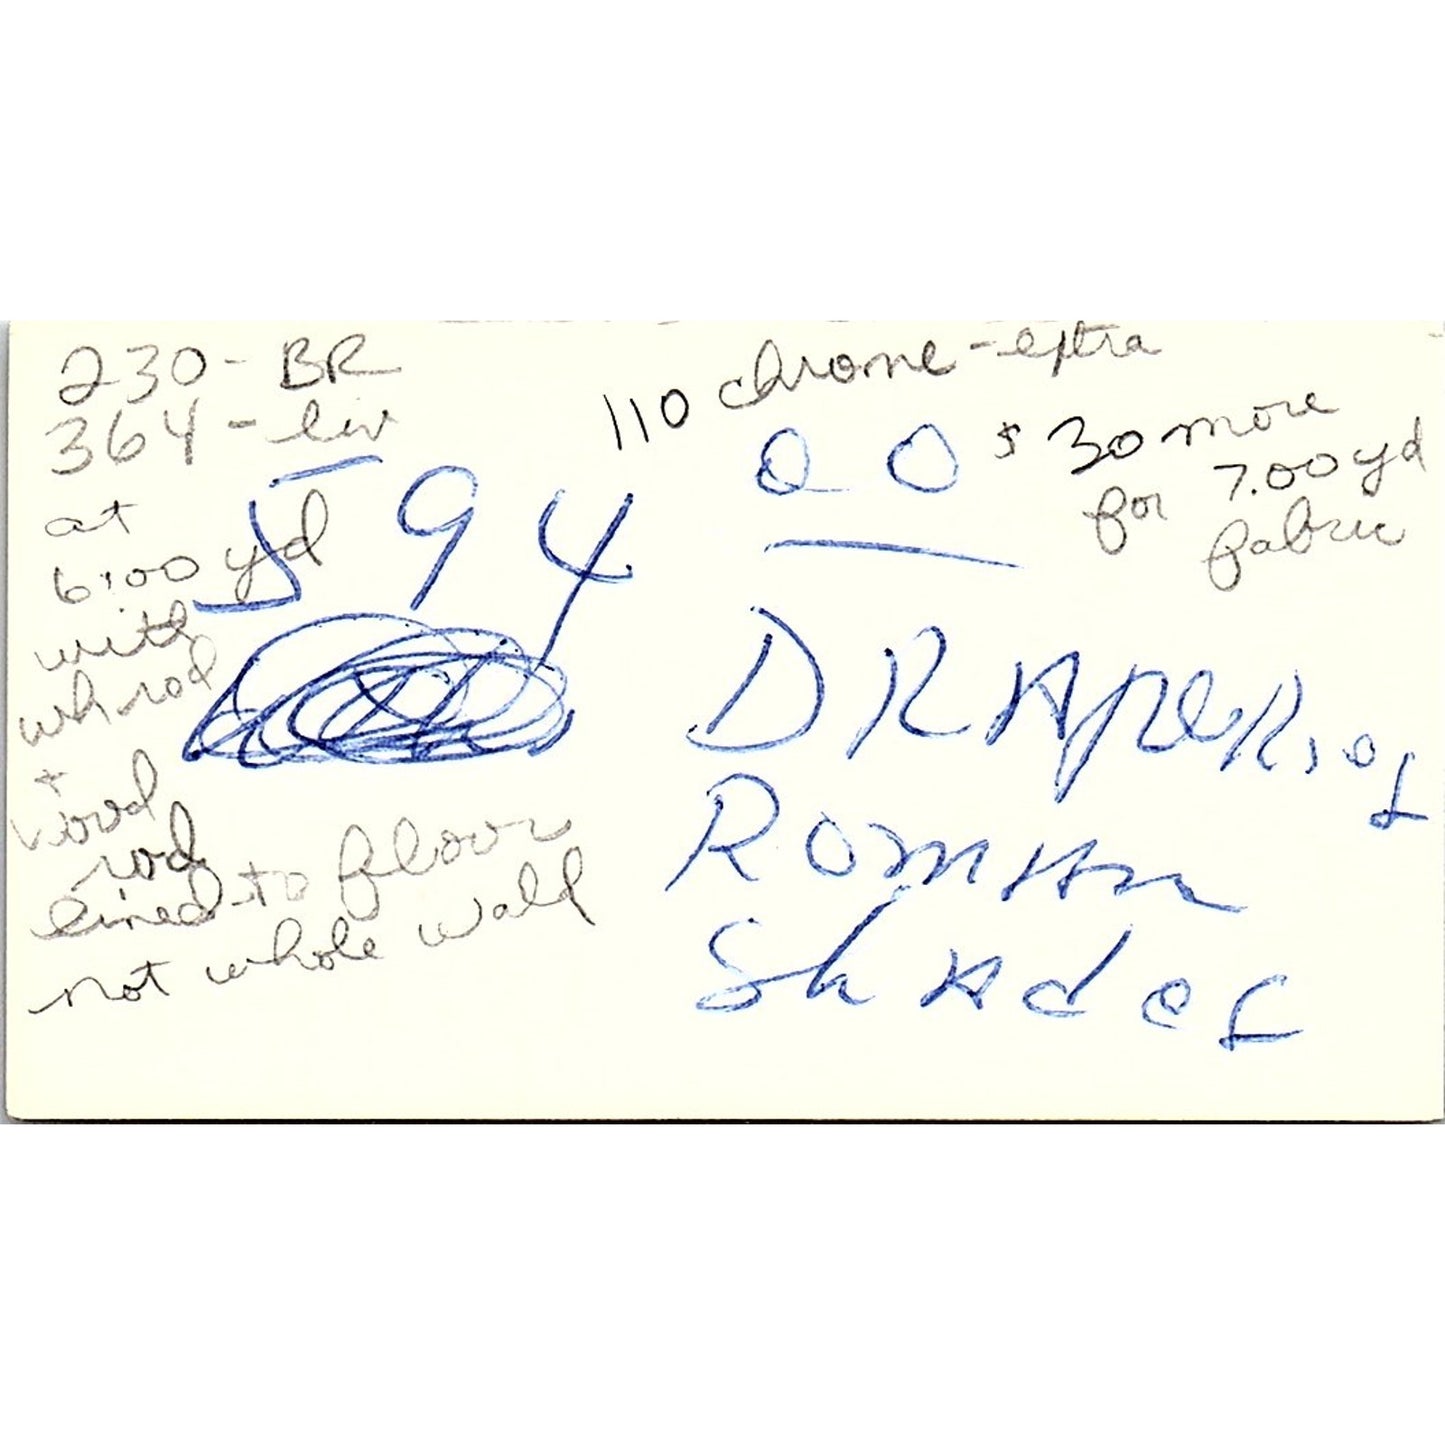 230 - BR
364 - liv
at
6:00 yd
with
wh rod
+
wood
rod
lined to floor
not whole wall
110 chrome - extra
$30 more
for 7.00 yd
fabric
594 00
DRAperies
Roman
Shades